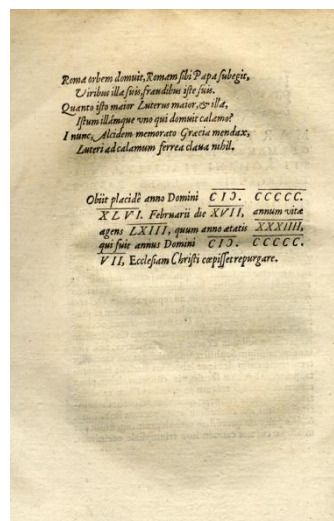 Roma orbem domuit, Romam sibi Papa subegit,
Viribus illa suis, fraudibus iste suis.
Quanto isto maior Luterus maior, & illa,
Istum illámque vno qui domuit calamo?
I nunc, Alcidem memorato Græcia mendax,
Luteri ad calamum ferrea claua nihil.
Obiit placidè anno Domini CIↃ. CCCCC.
XLVI. Februarii die XVII, annum vitæ
agens LXIII, quum anno ætatis XXXIIII,
qui fuit annus Domini CIↃ. CCCCC.
VII, Ecclesiam Christi cœpisset repurgare.